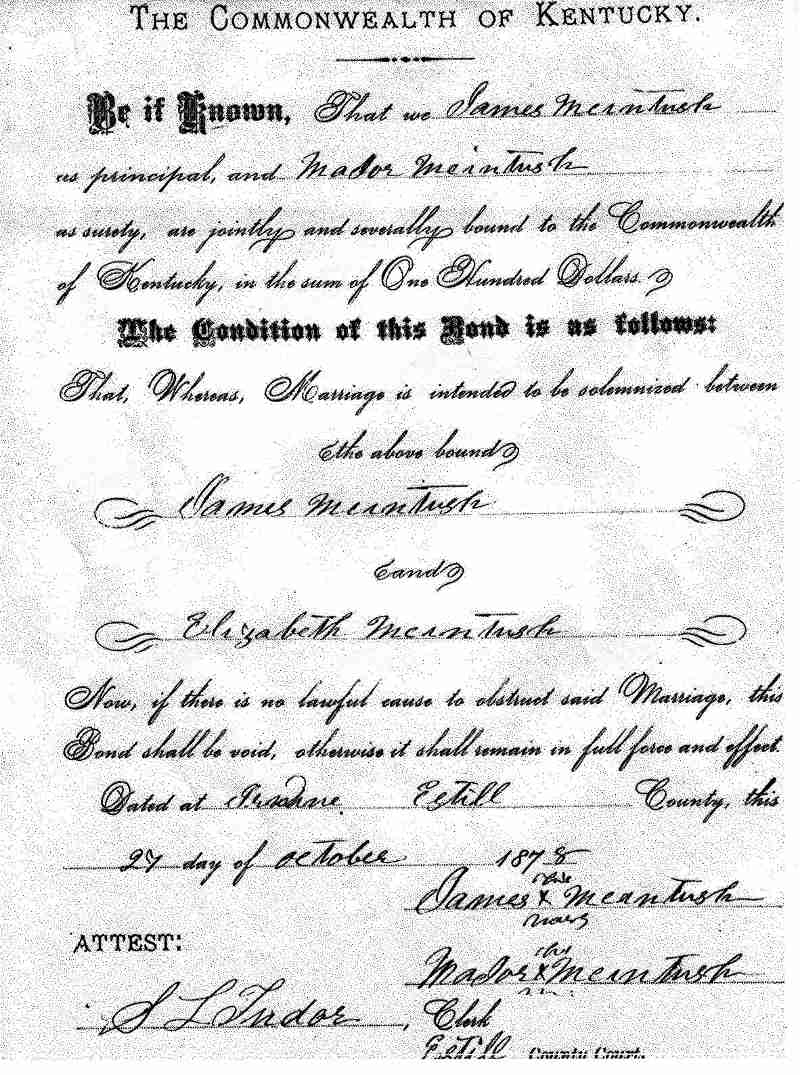 THE COMMONWEALTH OF KENTUCKY.
Be it Known, That we James McIntush
as principal, and Major McIntush
as surety, are jointly and severally bound to the Commonwealth
of Kentucky, in the sum of One Hundred Dollars.
The Condition of this Bond is as follows:
That, Whereas, Marriage is intended to be solemnized between
the above bound
James McIntush
and
Elizabeth McIntush
Now, if there is no lawful cause to obstruct said Marriage, this
Bond shall be void, otherwise it shall remain in full force and effect.
Dated at Irvine Estill County, this
27 day of October 1878
his
James x McIntush
mark
ATTEST:
his
Major x McIntush
S L Tudor, Clerk
Estill County Court.